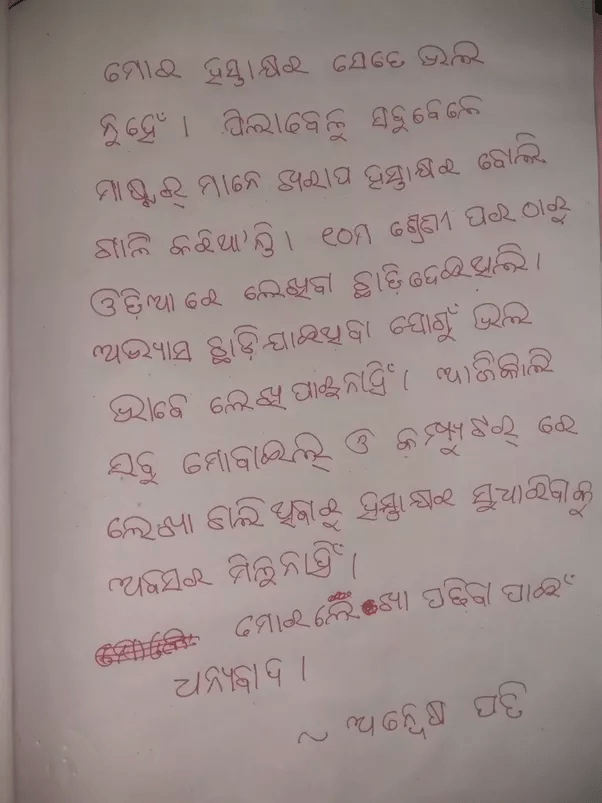 ମୋର ହସ୍ତାକ୍ଷର ସେତେ ଭଲ
ନୁହେଁ । ପିଲାବେଳୁ ସବୁବେଳେ
ମାଷ୍ଟର୍ ମାନେ ଖରାପ ହସ୍ତାକ୍ଷର ବୋଲି
ଗାଳି କରିଥା'ନ୍ତି । ୧୦ମ ଶ୍ରେଣୀ ପର ଠାରୁ
ଓଡ଼ିଆ ରେ ଲେଖିବା ଛାଡ଼ି ଦେଇଥିଲି ।
ଅଭ୍ୟାସ ଛାଡ଼ି ଯାଇଥିବା ଯୋଗୁଁ ଭଲ
ଭାବେ ଲେଖି ପାରୁନାହିଁ । ଆଜିକାଲି
ସବୁ ମୋବାଇଲ୍ ଓ କମ୍ପ୍ୟୁଟର୍ ରେ
ଲେଖା ଚାଲି ଥିବାରୁ ହସ୍ତାକ୍ଷର ସୁଧାରିବାକୁ
ଅବସର ମିଳୁନାହିଁ ।
ମୋର ଲେଖା ପଢ଼ିବା ପାଇଁ
ଧନ୍ୟବାଦ ।
~ ଅନ୍ୱେଷ ପତି